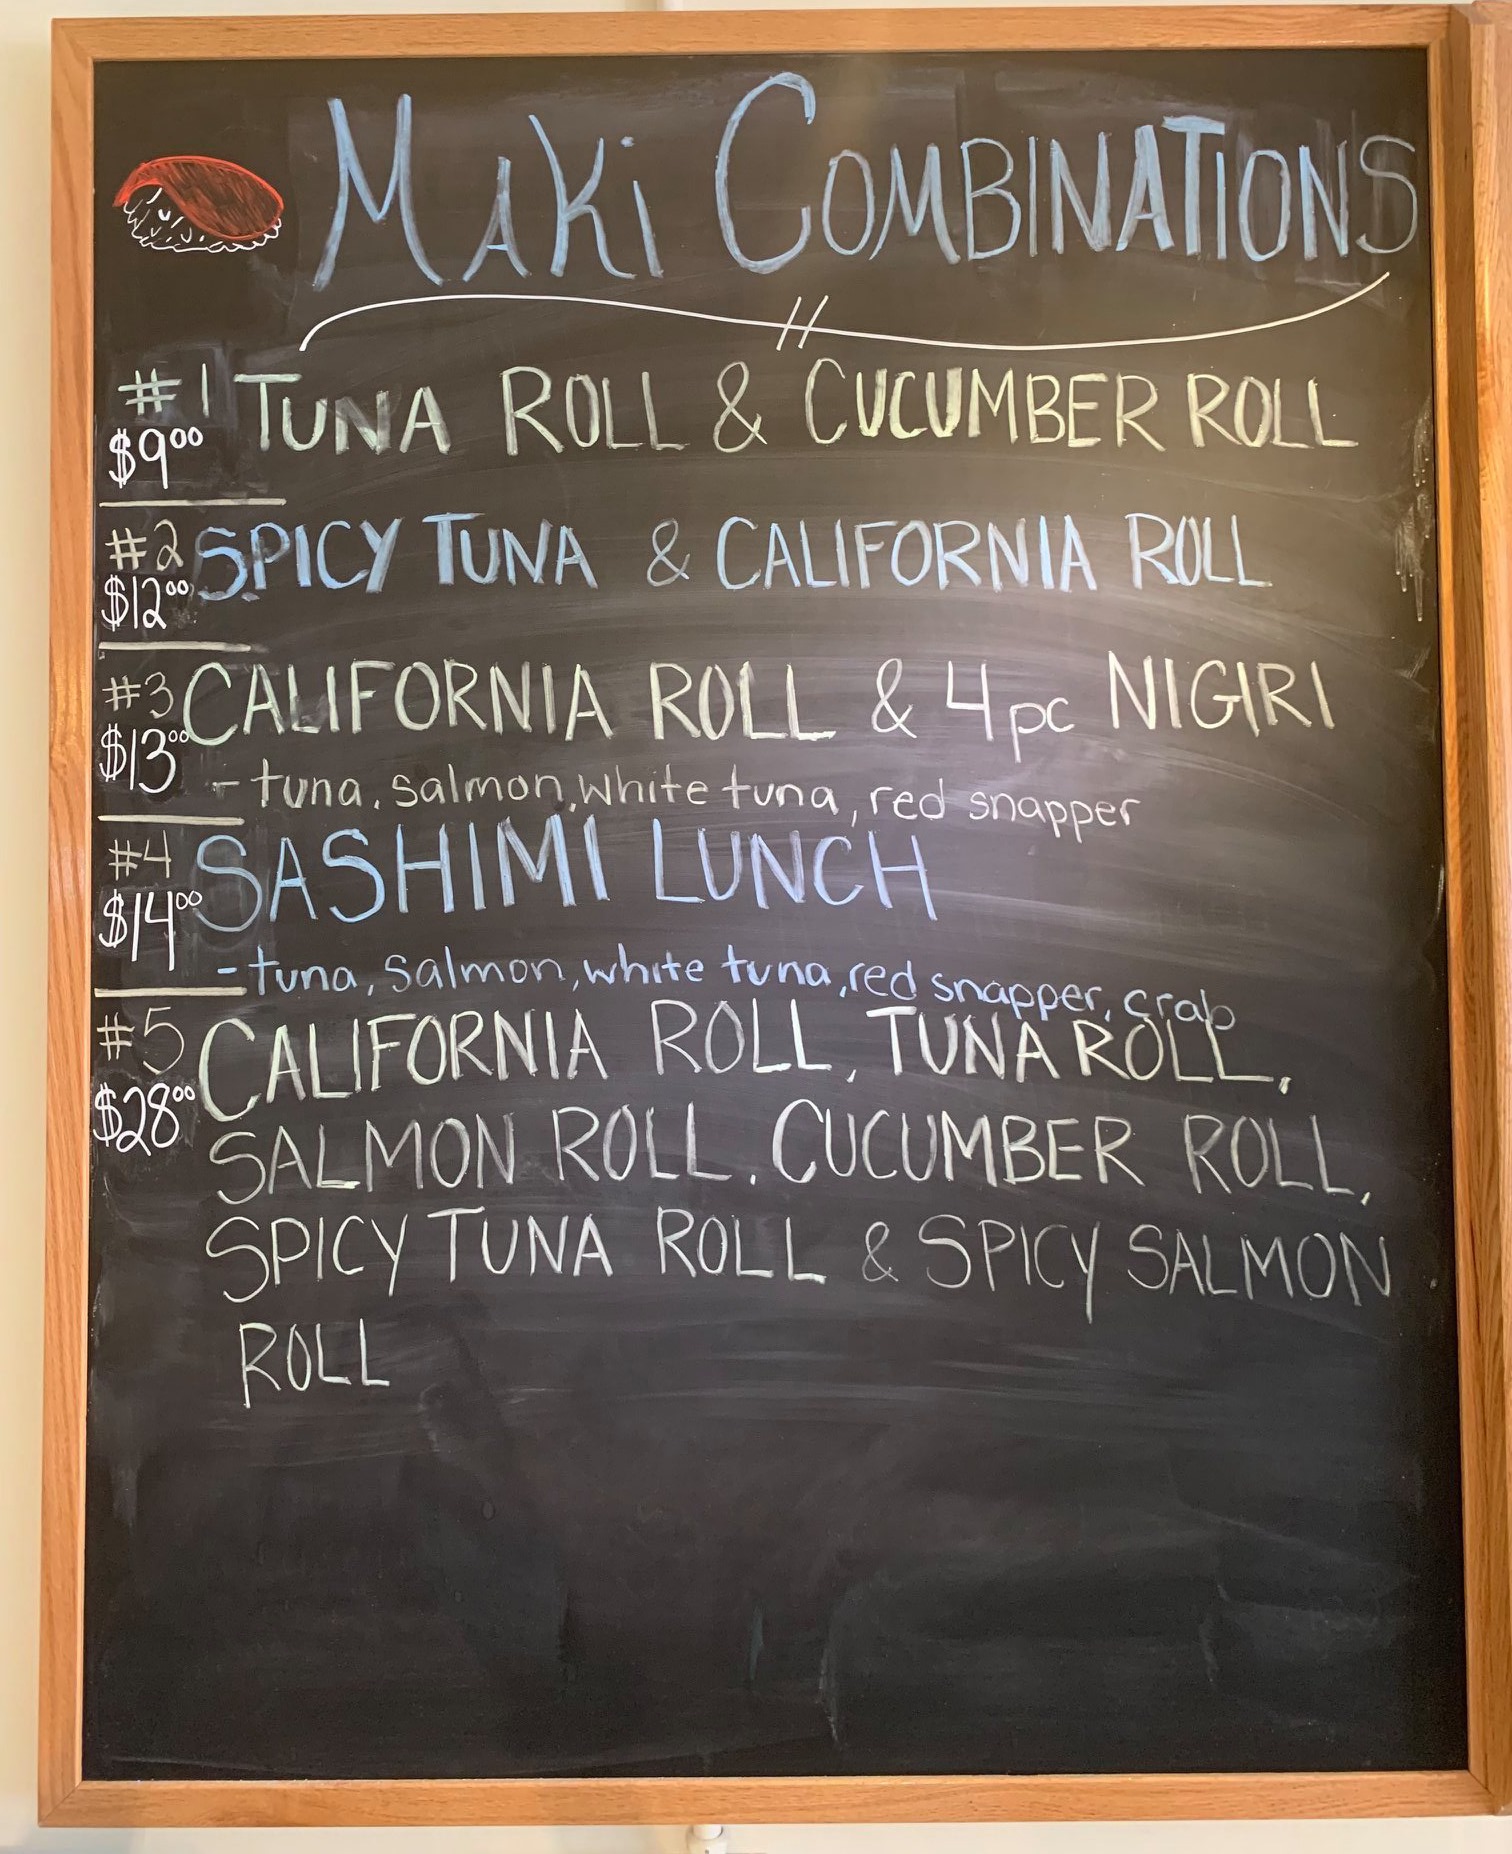 MAKi COMBINATIONS
#1 TUNA ROLL & CUCUMBER ROLL
$9.00
#2 SPICY TUNA & CALIFORNIA ROLL
$12.00
#3 CALIFORNIA ROLL & 4pc NIGIRI
$13.00
- tuna, salmon, white tuna, red snapper
#4 SASHIMI LUNCH
$14.00
- tuna, salmon, white tuna, red snapper, crab
#5 CALIFORNIA ROLL, TUNA ROLL,
$28.00
SALMON ROLL, CUCUMBER ROLL,
SPICY TUNA ROLL & SPICY SALMON
ROLL